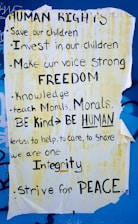 HUMAN RIGHTS
• Save our children
• Invest in our children
• Make our voice strong
FREEDOM
• Knowledge
• teach Morals, Morals.
BE Kind → BE HUMAN
to help, to care, to share
we are one
Integrity
• Strive for PEACE.